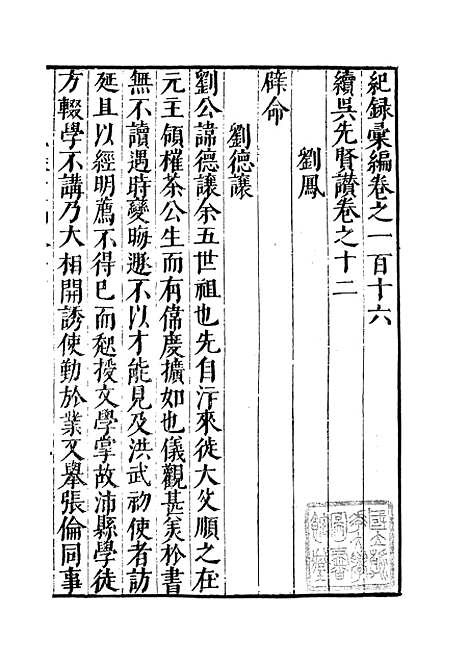 紀録彙編卷之一百十六
續吳先賢讃卷之十二
劉鳳
辟命
劉德讓
劉公諱德讓余五世祖也先自汴來徙大父順之在
元主領榷茶公生而有偉度擴如也儀觀甚美於書
無不讀遇時變晦遯不以才能見及洪武初使者訪
延且以經明薦不得已而起授文學掌故沛縣學徒
方輟學不講乃大相開誘使勤於業又舉張倫同事